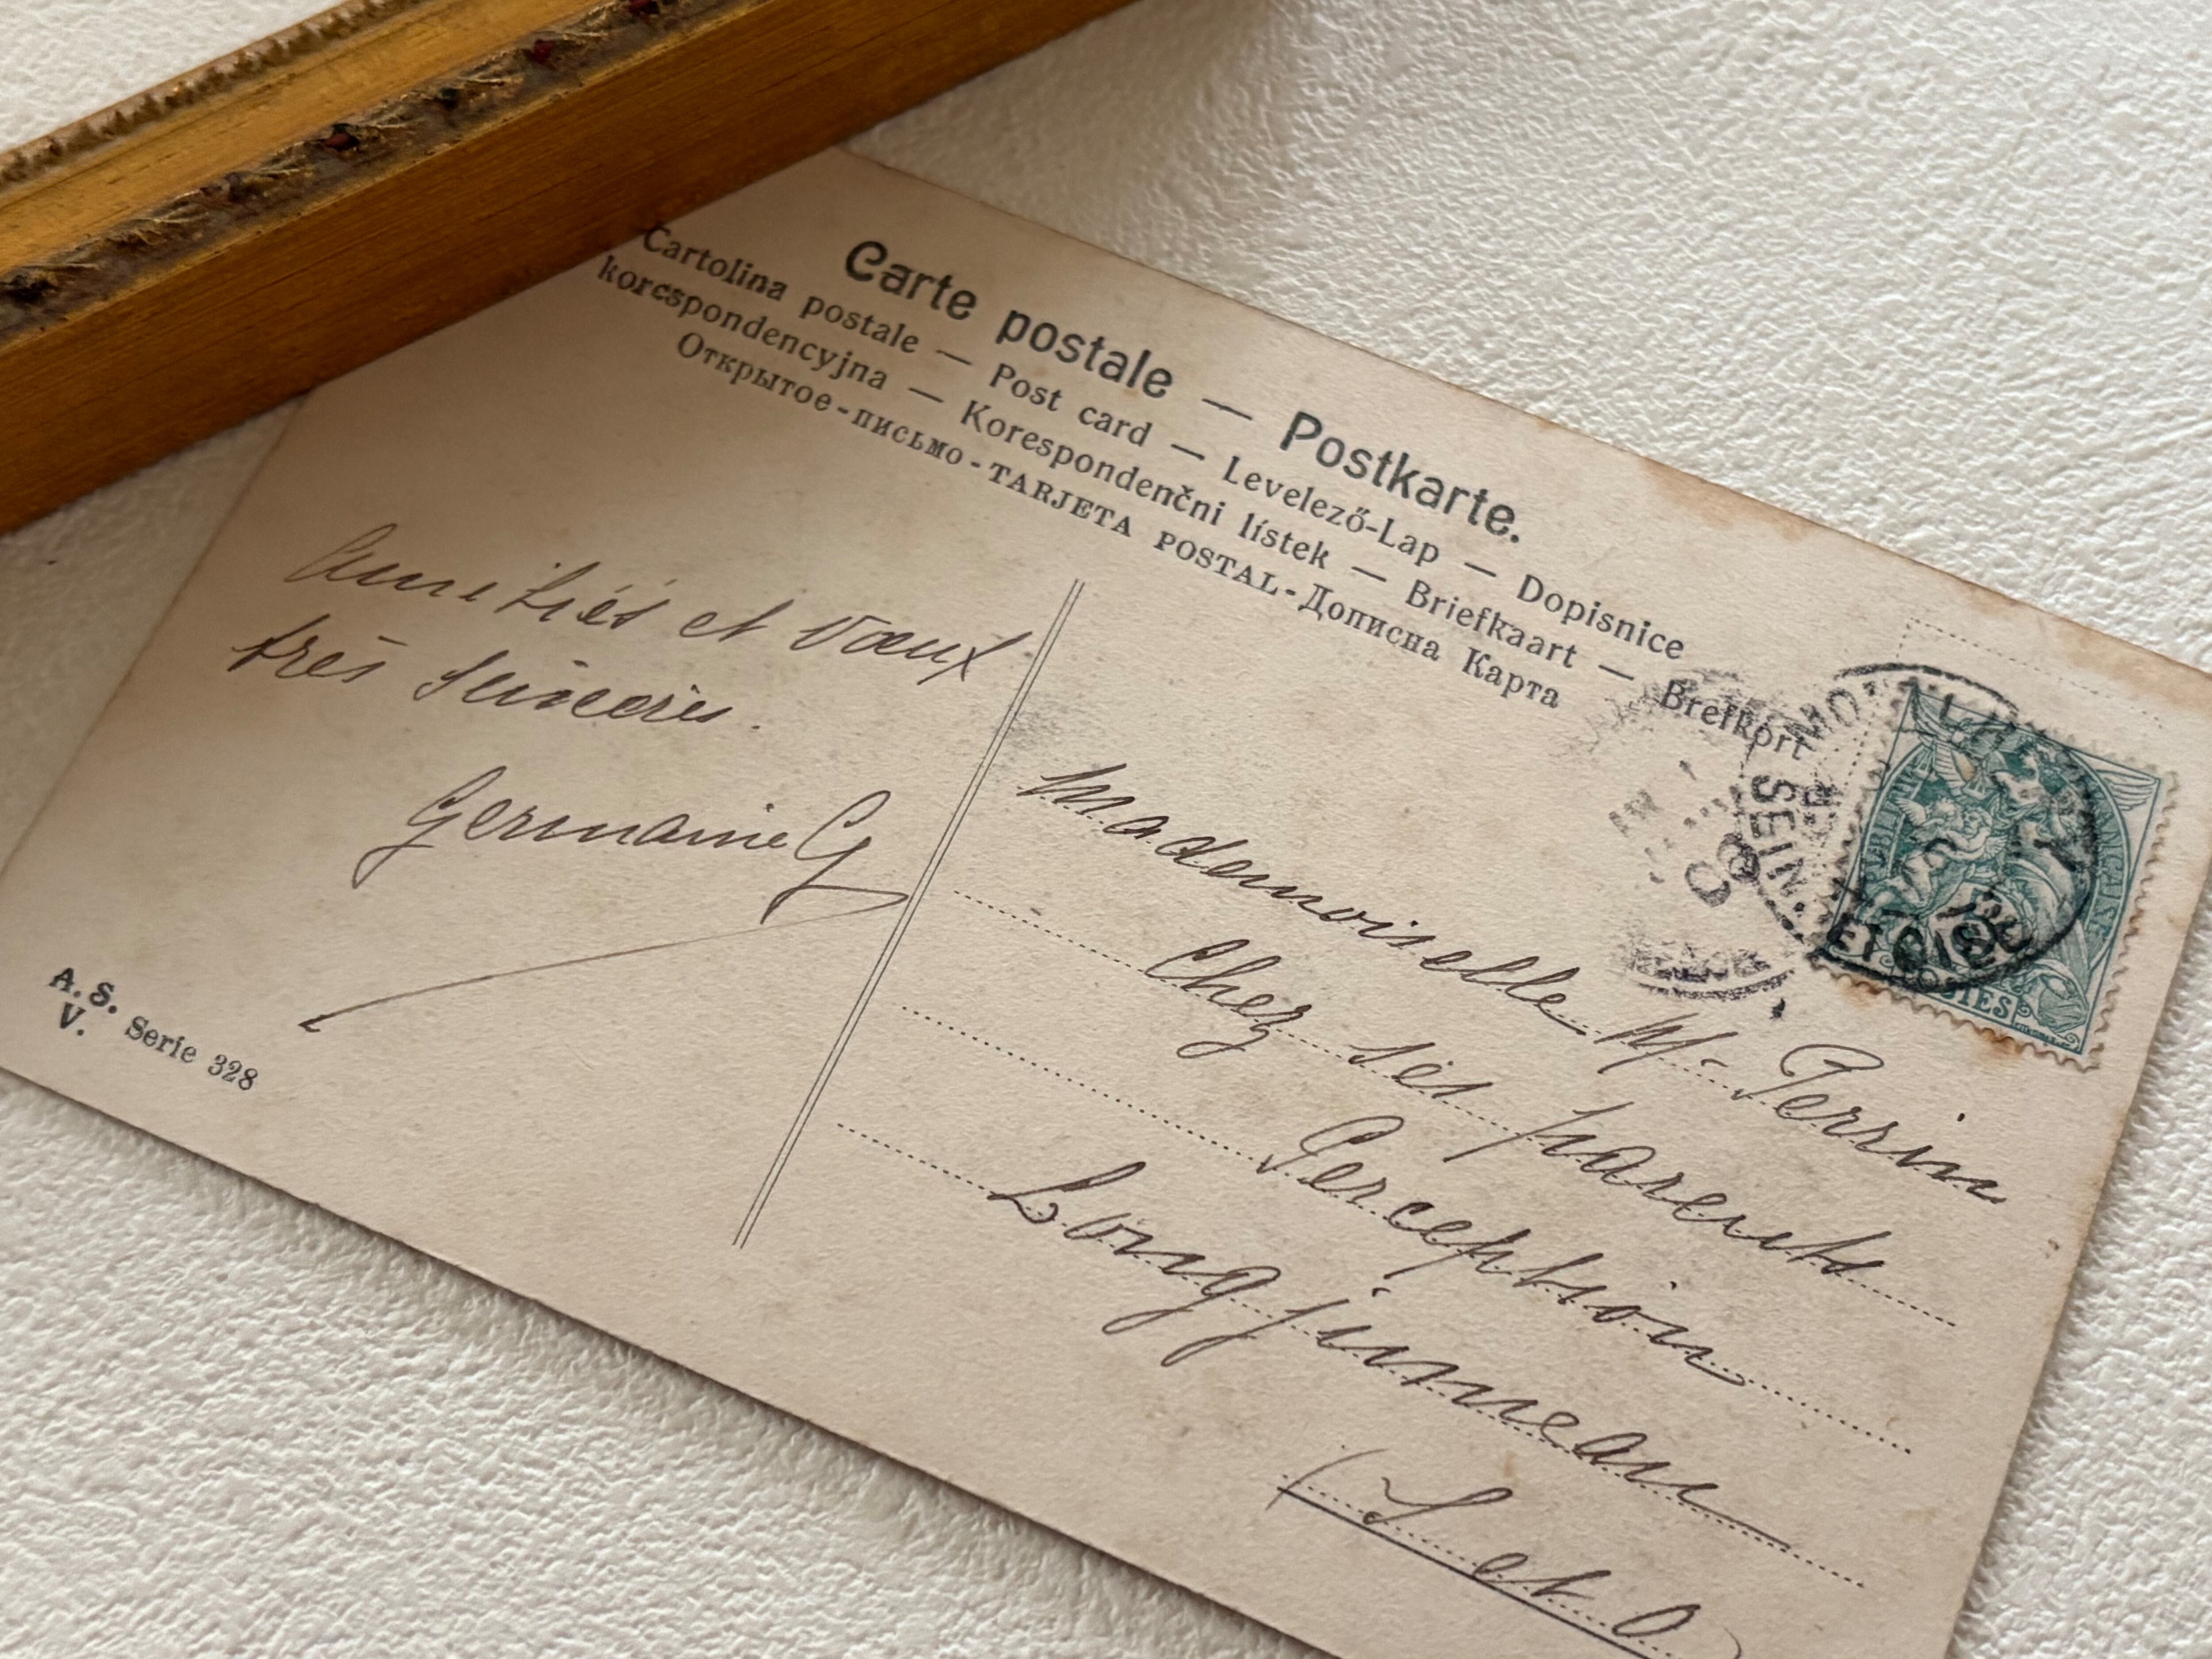 Carte postale — Postkarte.
Cartolina postale — Post card — Levelező-Lap — Dopisnice
korespondencyjna — Korespondenčni lístek — Briefkaart — Brefkort
Открытое-письмо - TARJETA POSTAL - Дописна Карта
Amitiés et vœux
très sincères.
Germaine G
A. S.
V. Serie 328
Mademoiselle M. Perrin
Chez ses parents
Perception
Longjumeau
(S et O)
SEINE
POSTES